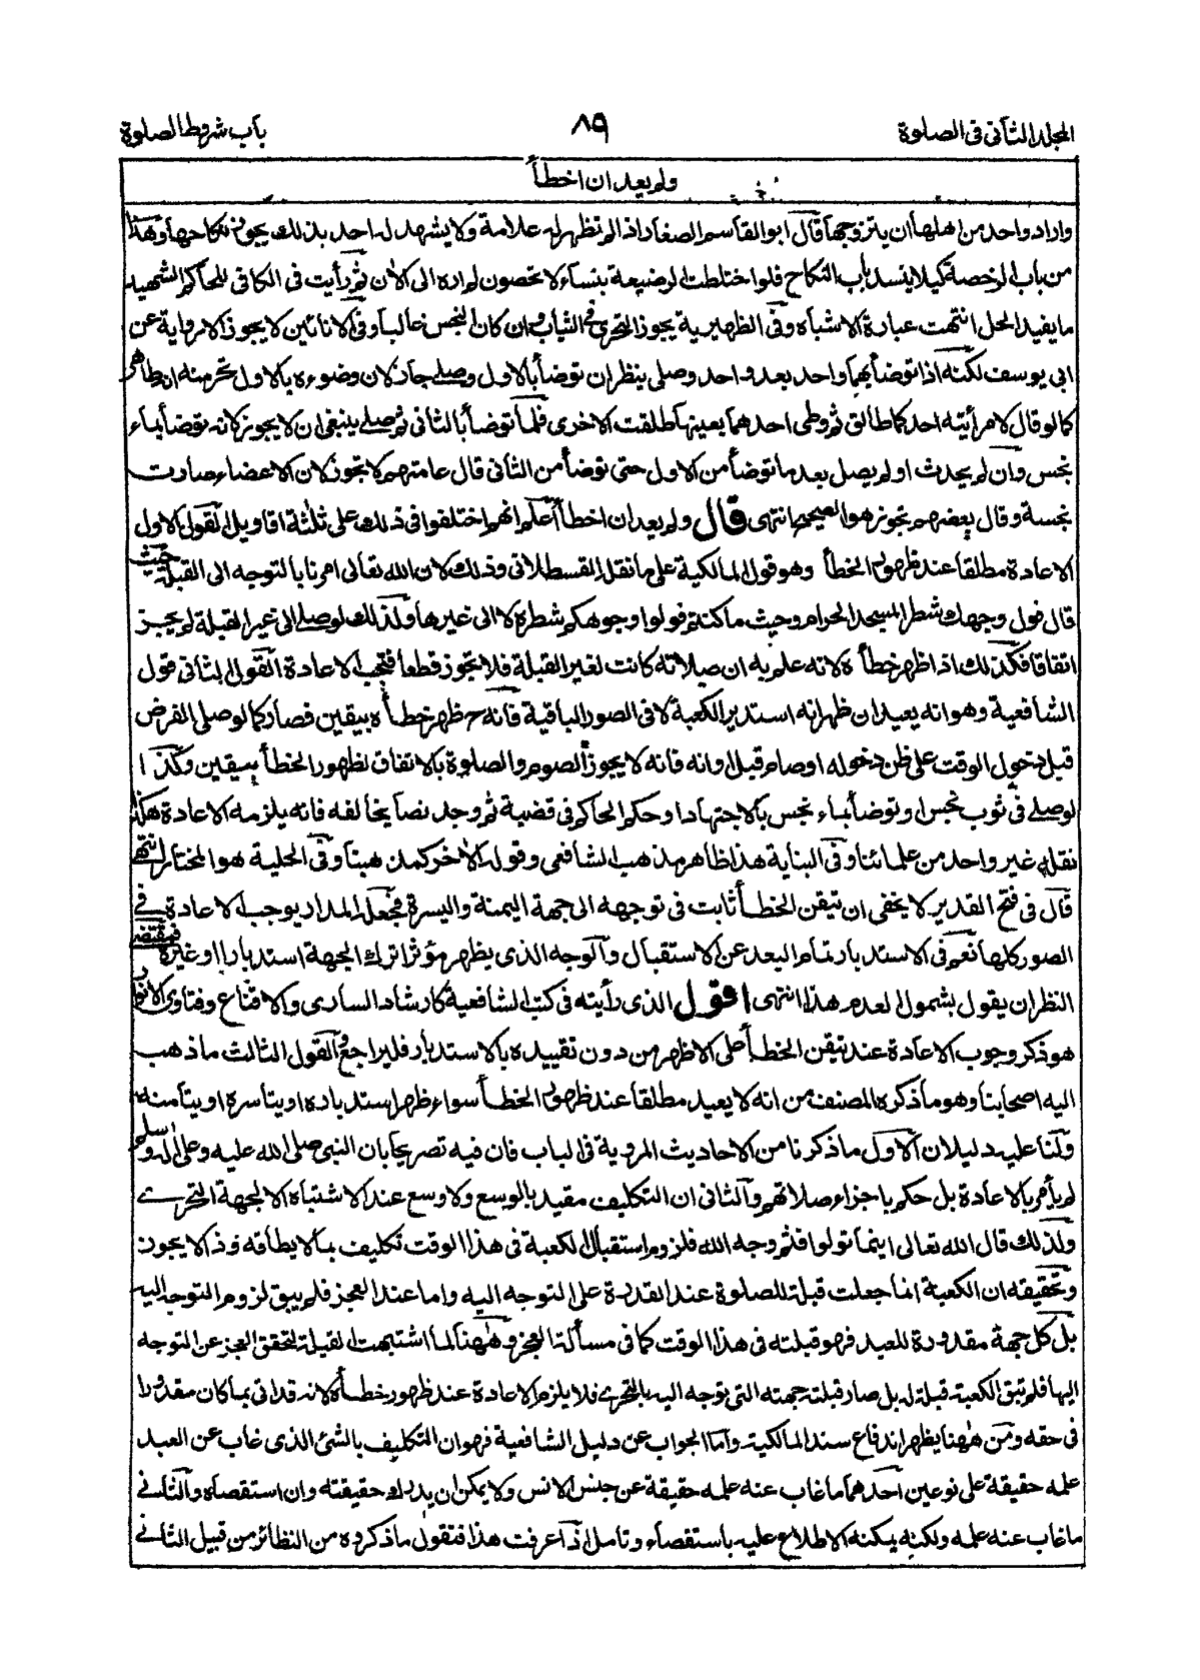 المجلد الثانى فى الصلوة
٨٩
باب شروط الصلوة
ولم يعد ان اخطأ
واراد واحد من اهلها ان يتزوجها قال ابو القاسم الصفار اذا لم تظهر له علامة ولا يشهد له احد بذلك يجوز نكاحها وهذا
من باب الرخصة كيلا ينسد باب النكاح فلو اختلطت الرضيعة بنساء لا تحصون لم اره الى الآن ثم رأيت فى الكافى للحاكم الشهيد
ما يفيد الحل انتهت عبارة الاشباه وفى الظهيرية يجوز التحرى فى الثياب وان كان النجس غالبا وفى الانائين لا يجوز الا رواية عن
ابى يوسف لكنه اذا توضأ بهما واحد بعد واحد وصلى ينظر ان توضأ بالاول وصلى جاز لان وضوءه بالاول تحر منه انه طاهر
كما لو قال لامرأيته احدكما طالق ثم وطى احدهما بعينها طلقت الاخرى فلما توضأ بالثانى ثم صلى ينبغى ان لا يجوز كانه توضأ بماء
نجس وان لم يحدث او لم يصل بعد ما توضأ من الاول حتى توضأ من الثانى قال عامتهم لا تجوز لان الاعضاء صارت
نجسة وقال بعضهم تجوز هو الصحيح انتهى قال ولم يعد ان اخطأ أعلم انهم اختلفوا فى ذلك على ثلثة اقاويل القول الاول
الاعادة مطلقا عند ظهور الخطأ وهو قول المالكية على ما نقله القسطلانى وذلك لان الله تعالى امرنا بالتوجه الى القبلة حيث
قال فول وجهك شطر المسجد الحرام وحيث ما كنتم فولوا وجوهكم شطره لا الى غيرها ولذلك لو صلى الى غير القبلة لم يجز
اتفاقا فكذلك اذا ظهر خطأه لانه علم به ان صلاته كانت لغير القبلة فلا تجوز قطعا فتجب الاعادة القول الثانى قول
الشافعية وهو انه يعيد ان ظهر انه استدبر الكعبة لا فى الصور الباقية فانه ح ظهر خطأه بيقين فصار كما لو صلى الفرض
قبل دخول الوقت على ظن دخوله او صام قبل اوانه فانه لا يجوز الصوم والصلوة بالاتفاق لظهور الخطأ بيقين وكذا
لو صلى فى ثوب نجس او توضأ بماء نجس بالاجتهاد او حكم الحاكم فى قضية ثم وجد نصا يخالفه فانه يلزمه الاعادة هكذا
نقله غير واحد من علمائنا وفى البناية هذا ظاهر مذهب الشافعى وقوله الآخر كمذهبنا وفى الحلية هو المختار انتهى
قال فى فتح القدير لا يخفى ان تيقن الخطأ ثابت فى توجهه الى جهة اليمنة واليسرة فجعله المدار يوجب الاعادة فى
الصور كلها نعم فى الاستدبار تمام البعد عن الاستقبال والوجه الذى يظهر مؤثرا ترك الجهة استدبارا او غيره فمقتضى
النظر ان يقول بشمول العدم هذا انتهى اقول الذى رأيته فى كتب الشافعية كارشاد السارى والاقناع وفتاوى
هو ذكر وجوب الاعادة عند تيقن الخطأ على الاظهر من دون تقييده بالاستدبار فليراجع والقول الثالث ما ذهب
اليه اصحابنا وهو ما ذكره المصنف من انه لا يعيد مطلقا عند ظهور الخطأ سواء ظهر استدباره او يتاسره او يتامنه
ولنا عليه دليلان الاول ما ذكرنا من الاحاديث المروية فى الباب فان فيه تصريحا بان النبى صلى الله عليه وعلى اله وسلم
لم يأمر بالاعادة بل حكم باجزاء صلاتهم والثانى ان التكليف مقيد بالوسع ولا وسع عند الاشتباه الا لجهة التحرى
ولذلك قال الله تعالى اينما تولوا فثم وجه الله فلزوم استقبال الكعبة فى هذا الوقت تكليف بما لا يطاقه وذا لا يجوز
وتحقيقه ان الكعبة انما جعلت قبلة للصلوة عند القدرة على التوجه اليه واما عند العجز فلم يبق لزوم التوجه اليه
بل كل جهة مقدورة للعبد فهو قبلته فى هذا الوقت كما فى مسألة العجز وههنا لما اشتبهت القبلة تحقق العجز عن التوجه
اليها فلم تبق الكعبة قبلة له بل صار قبلته جهته التى توجه اليه بالتحرى فلا يلزم الاعادة عند ظهور خطأه لانه قد اتى بما كان مقدورا
فى حقه ومن ههنا يظهر اندفاع سند المالكية واما الجواب عن دليل الشافعية فهو ان التكليف بالشئ الذى غاب عن العبد
علمه حقيقة على نوعين احدهما ما غاب عنه علمه حقيقة عن جنس الانس ولا يمكن ان يدرك حقيقته وان استقصاه والثانى
ما غاب عنه علمه ولكنه يمكنه الاطلاع عليه باستقصاء وتامل اذا عرفت هذا فنقول ما ذكروه من النظائر من قبيل الثانى